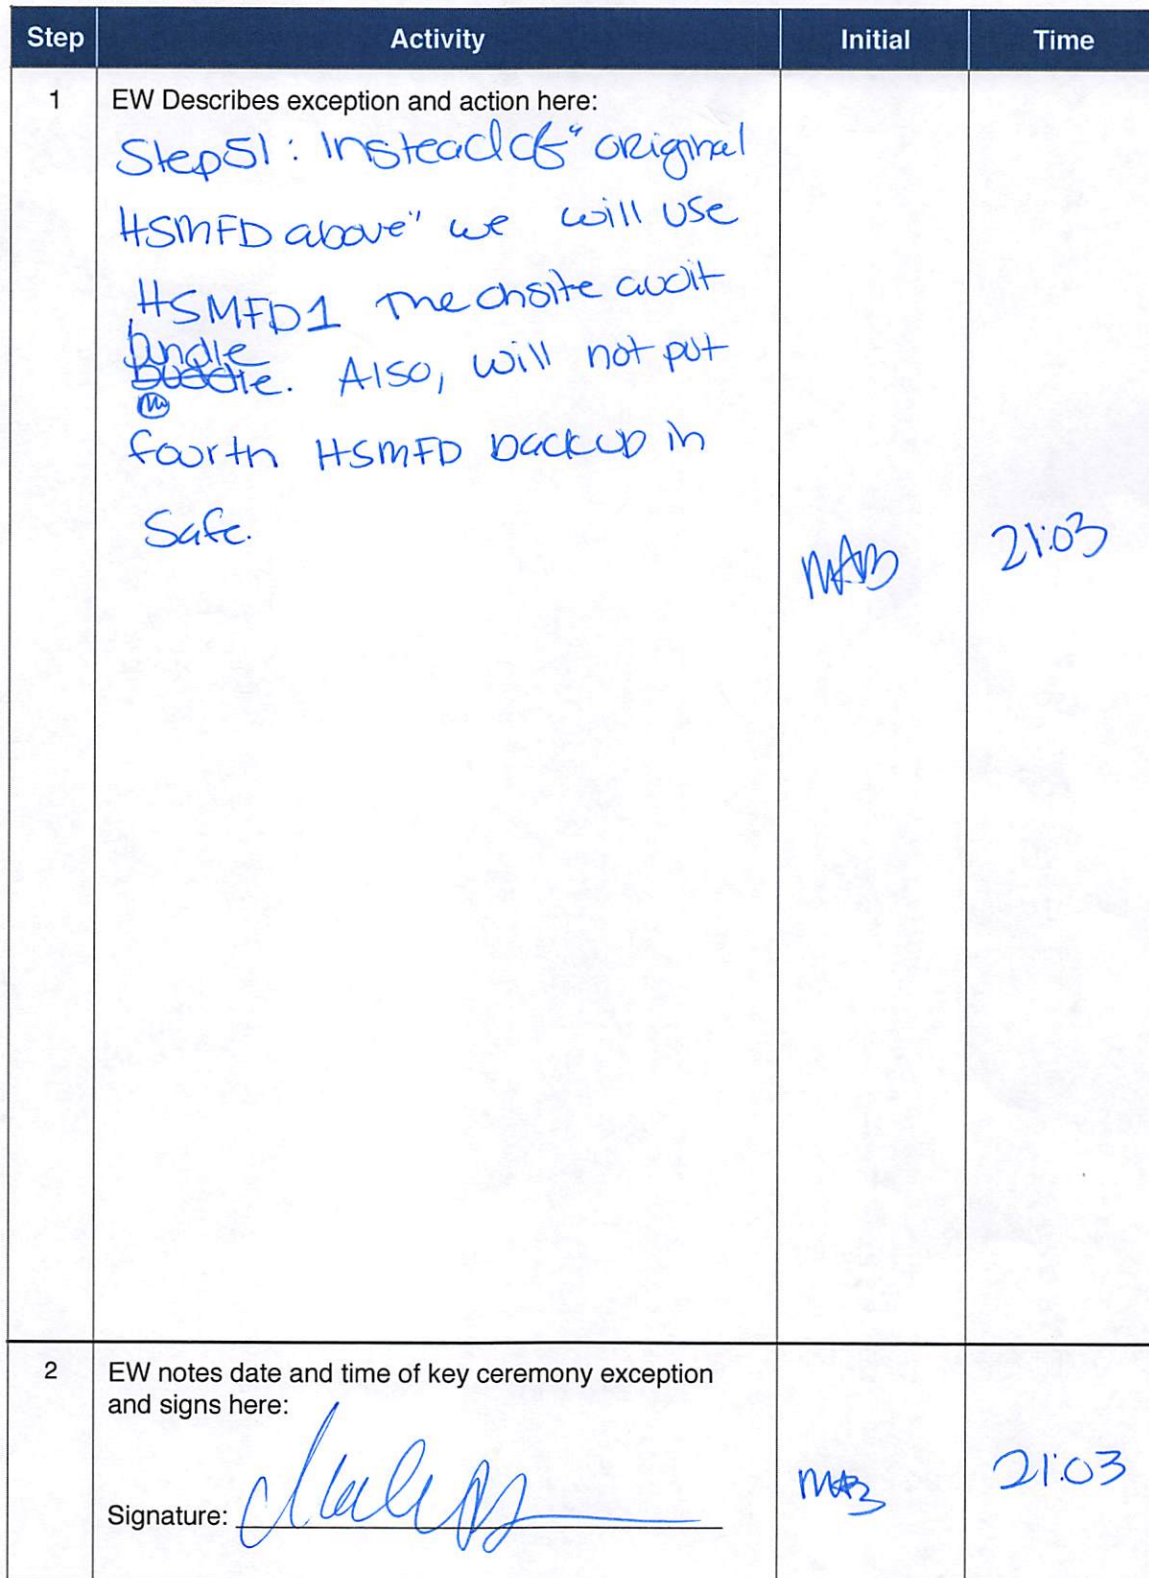 Step Activity Initial Time
1 EW Describes exception and action here:
Step 51: Instead of "original
HSMFD above" we will use
HSMFD1 the onsite audit
bundle
buddie. Also, will not put
fourth HSMFD backup in
Safe.
MAB 21:03
2 EW notes date and time of key ceremony exception
and signs here:
Signature:
MAB 21:03